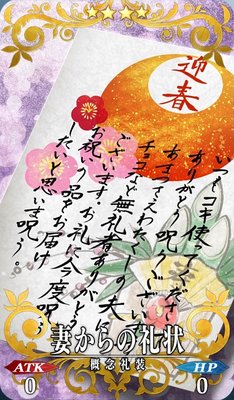 迎春
いつもコキ使てくださり
ありがとう呪うございます
あまつさえわたくしの夫に
チョコなど無礼者ありがとう
ございます。お礼に今度呪う
お祝いの品をお届け
したいと思います呪う。
妻からの礼状
概念礼装
ATK
0
HP
0